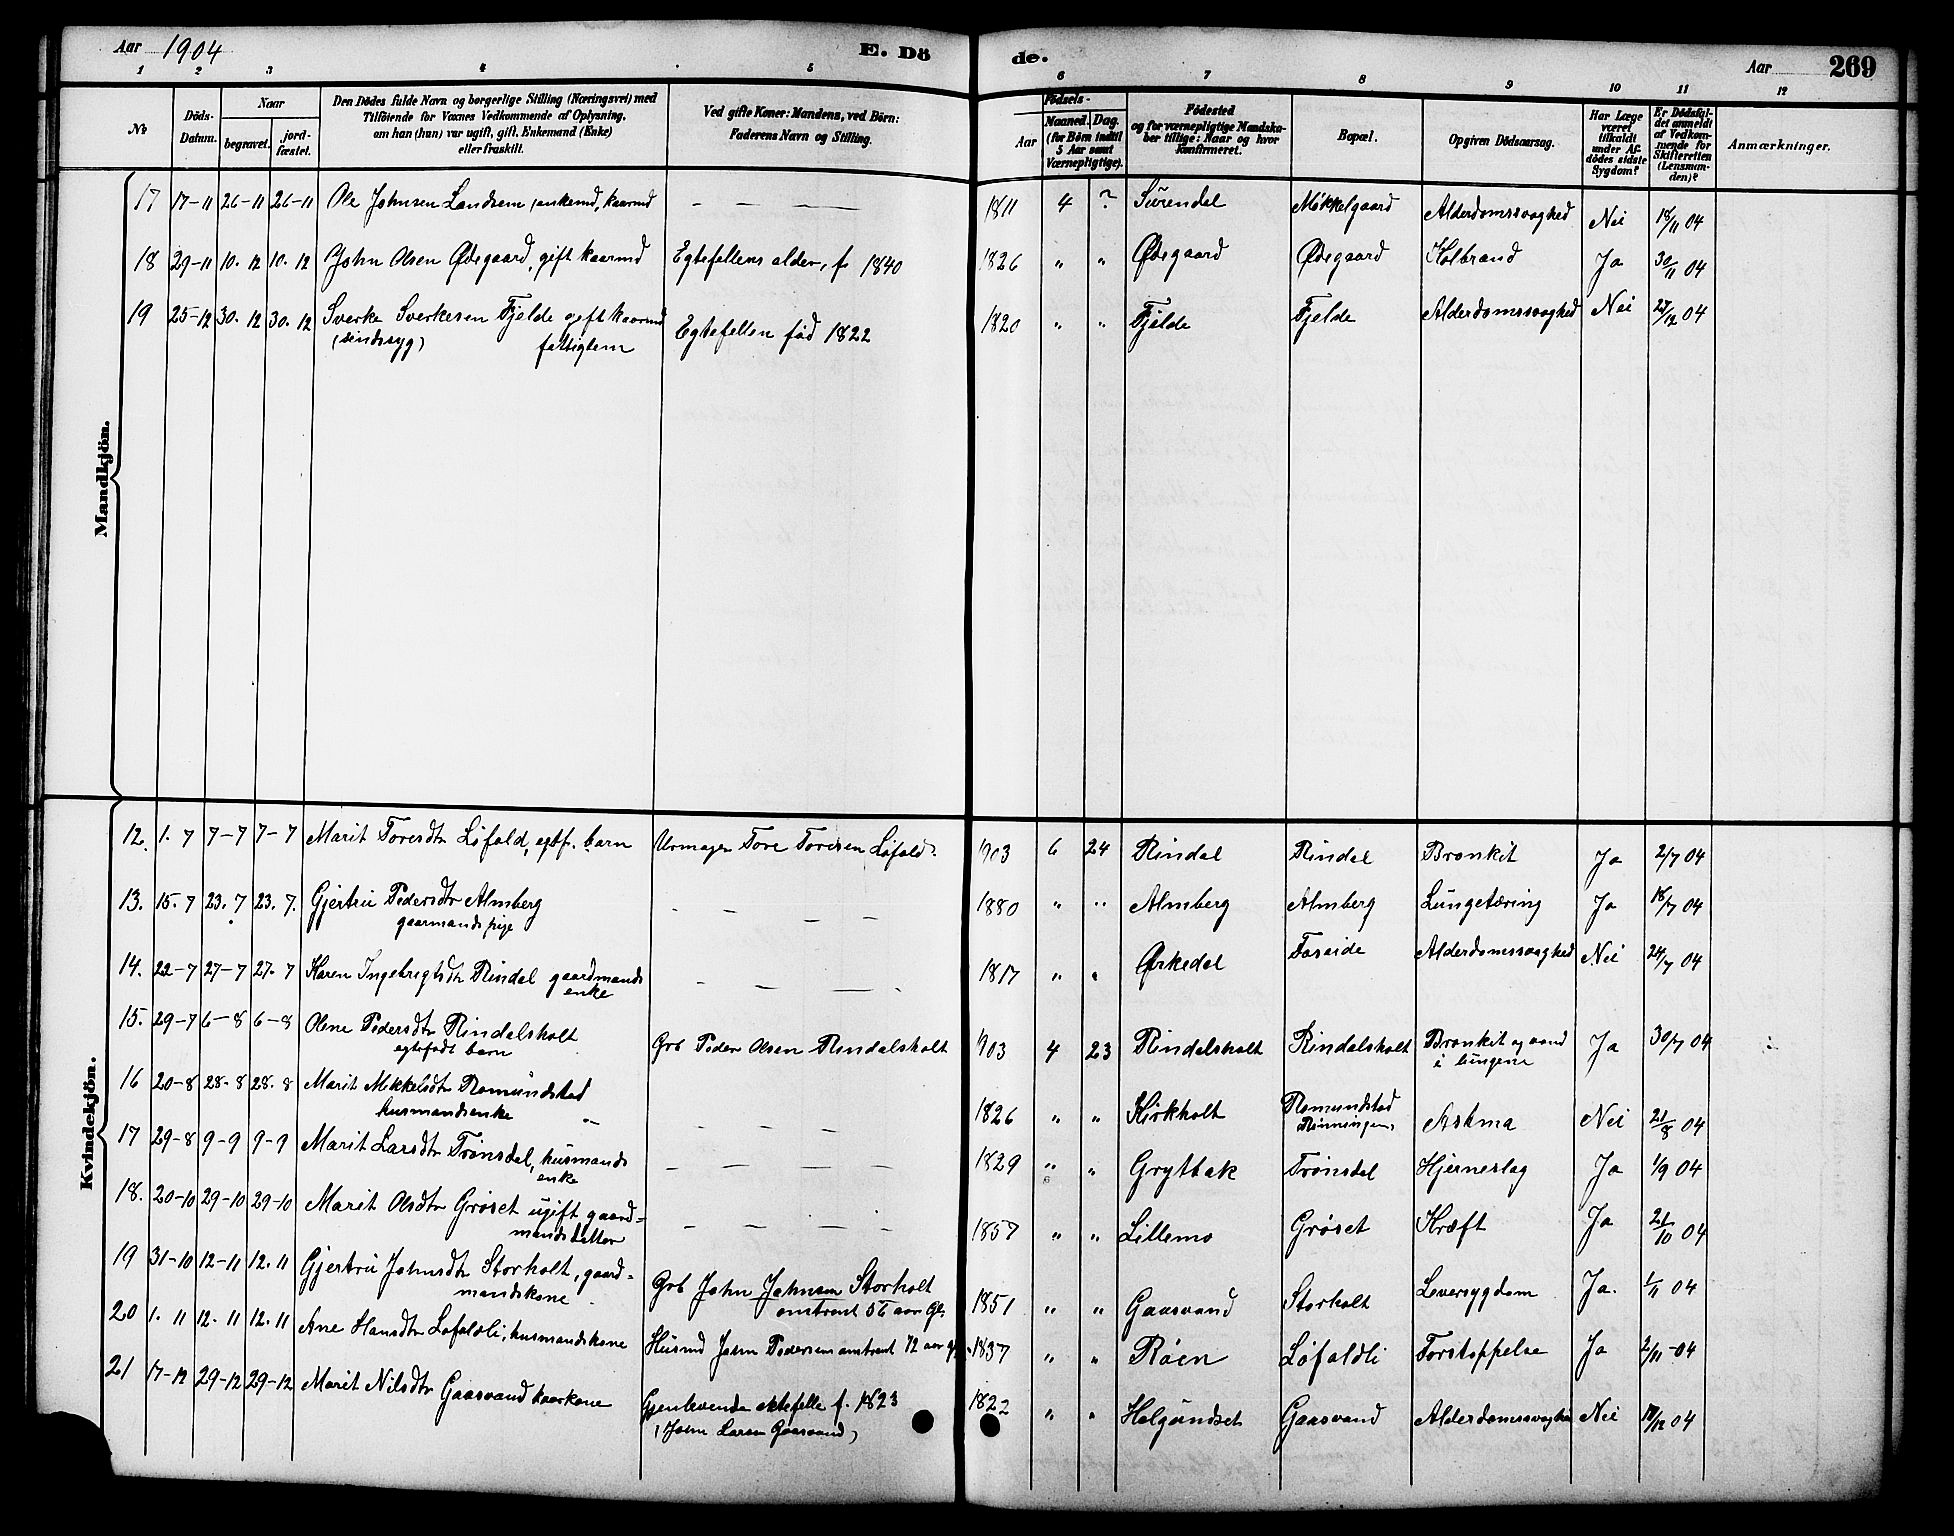 Aar 1904 E. Dö de. Aar 269
1 2 3 4 5 6 7 8 9 10 11 12
No
Döds-Datum.
Naar
begravet.
jord-fæstet.
Den Dödes fulde Navn og borgerlige Stilling (Næringsvei) med
Tilföiende for Voxnes Vedkommende af Oplysning,
om han (hun) var ugift, gift, Enkemand (Enke)
eller fraskilt.
Ved gifte Koner: Mandens, ved Börn:
Faderens Navn og Stilling.
Födsels-
Aar
Maaned. Dag.
(for Börn indtil
5 Aar samt
Værnepligtige).
Födested
og for værnepligtige Mandska-
ber tillige: Naar og hvor
Konfirmeret.
Bopæl.
Opgiven Dödsaarsag.
Har Læge
været
tilkaldt
under Af-
dödes sidste
Sygdom?
Er Dödsfal-
det anmeldt
af Vedkom-
mende for
Skifteretten
(Lensman-
den)?
Anmærkninger.
Mandkjön.
17 17-11 26-11 26-11 Ole Johnsen Landsem, enkemd, kaarmd — — — 1811 4 ? Surendal Mikkelgaard Alderdomssvaghed Nei 18/11 04
18 29-11 10. 12 10. 12 John Olsen Ødegaard, gift kaarmd Egtefellens alder, f. 1840 1826 " " Ødegaard Ødegaard Kolbrand Ja 30/11 04
19 25-12 30. 12 30. 12 Sverke Sverkesen Fjelde gift kaarmd Egtefellen fød 1822 1820 " " Fjelde Fjelde Alderdomssvaghed Nei 27/12 04
(sindssyg) fattiglem
Kvindekjön.
12. 1. 7 7-7 7-7 Marit Toresdtr Løfald, egtf. barn Urmager Tore Toresen Løfald. 1903 6 24 Rindal Rindal Bronkit Ja 2/7 04
13. 15. 7 23. 7 23. 7. Gjertru Pedersdtr Almberg — — — — 1880 " " Almberg Almberg Lungetæring Ja 18/7 04
gaarmands pige
14. 22-7 27-7 27. 7 Karen Ingebrigtsdtr Rindal gaardmands — — — 1817 " " Ørkedal Foseide Alderdomssvaghed Nei 24/7 04
enke
15. 29-7 6-8 6-8 Olene Pedersdtr Rindalsholt Grb Peder Olsen Rindalsholt 1903 4 23 Rindalsholt Rindalsholt Bronkit og vand Ja 30/7 04
egtefødt barn i lungene
16 20-8 28-8 28. 8 Marit Mikkelsdtr Romundstad — — — 1826 " " Kirkholt Romundstad Astma Nei 21/8 04
husmandsenke " Rinningen
17 29-8 9-9 9-9 Marit Larsdtr Trønsdal, husmands — — — — 1829 " " Grytbak Trønsdal Hjerneslag Ja 1/9 04
enke
18. 20-10 29-10 29-10 Marit Olsdtr Grøset ugift gaard- — — — — 1857 " " Lillemo Grøset Kræft Ja 21/10 04
mandsdatter
19 31-10 12-11 12. 11 Gjertru Johnsdtr Storholt, gaard- Grb John Johnsen Storholt 1851 " " Gaasvand Storholt Leversygdom Ja. 1/11 04
mandskone omtrent 56 aar Gl.
20 1. 11 12. 11 12. 11 Ane Hansdtr Løfaldli, husmandskone Husmd John Pedersen omtrent 72 aar gl. 1837 " " Røen Løfaldli Forstoppelse Ja 2/11-04
21 17-12 29-12 29-12 Marit Nilsdtr Gaasvand kaarkone Gjenlevende ektefelle f. 1823 1822 " " Helgundset Gaasvand Alderdomssvaghed Nei 18/12 04
(John Larsen Gaasvand)